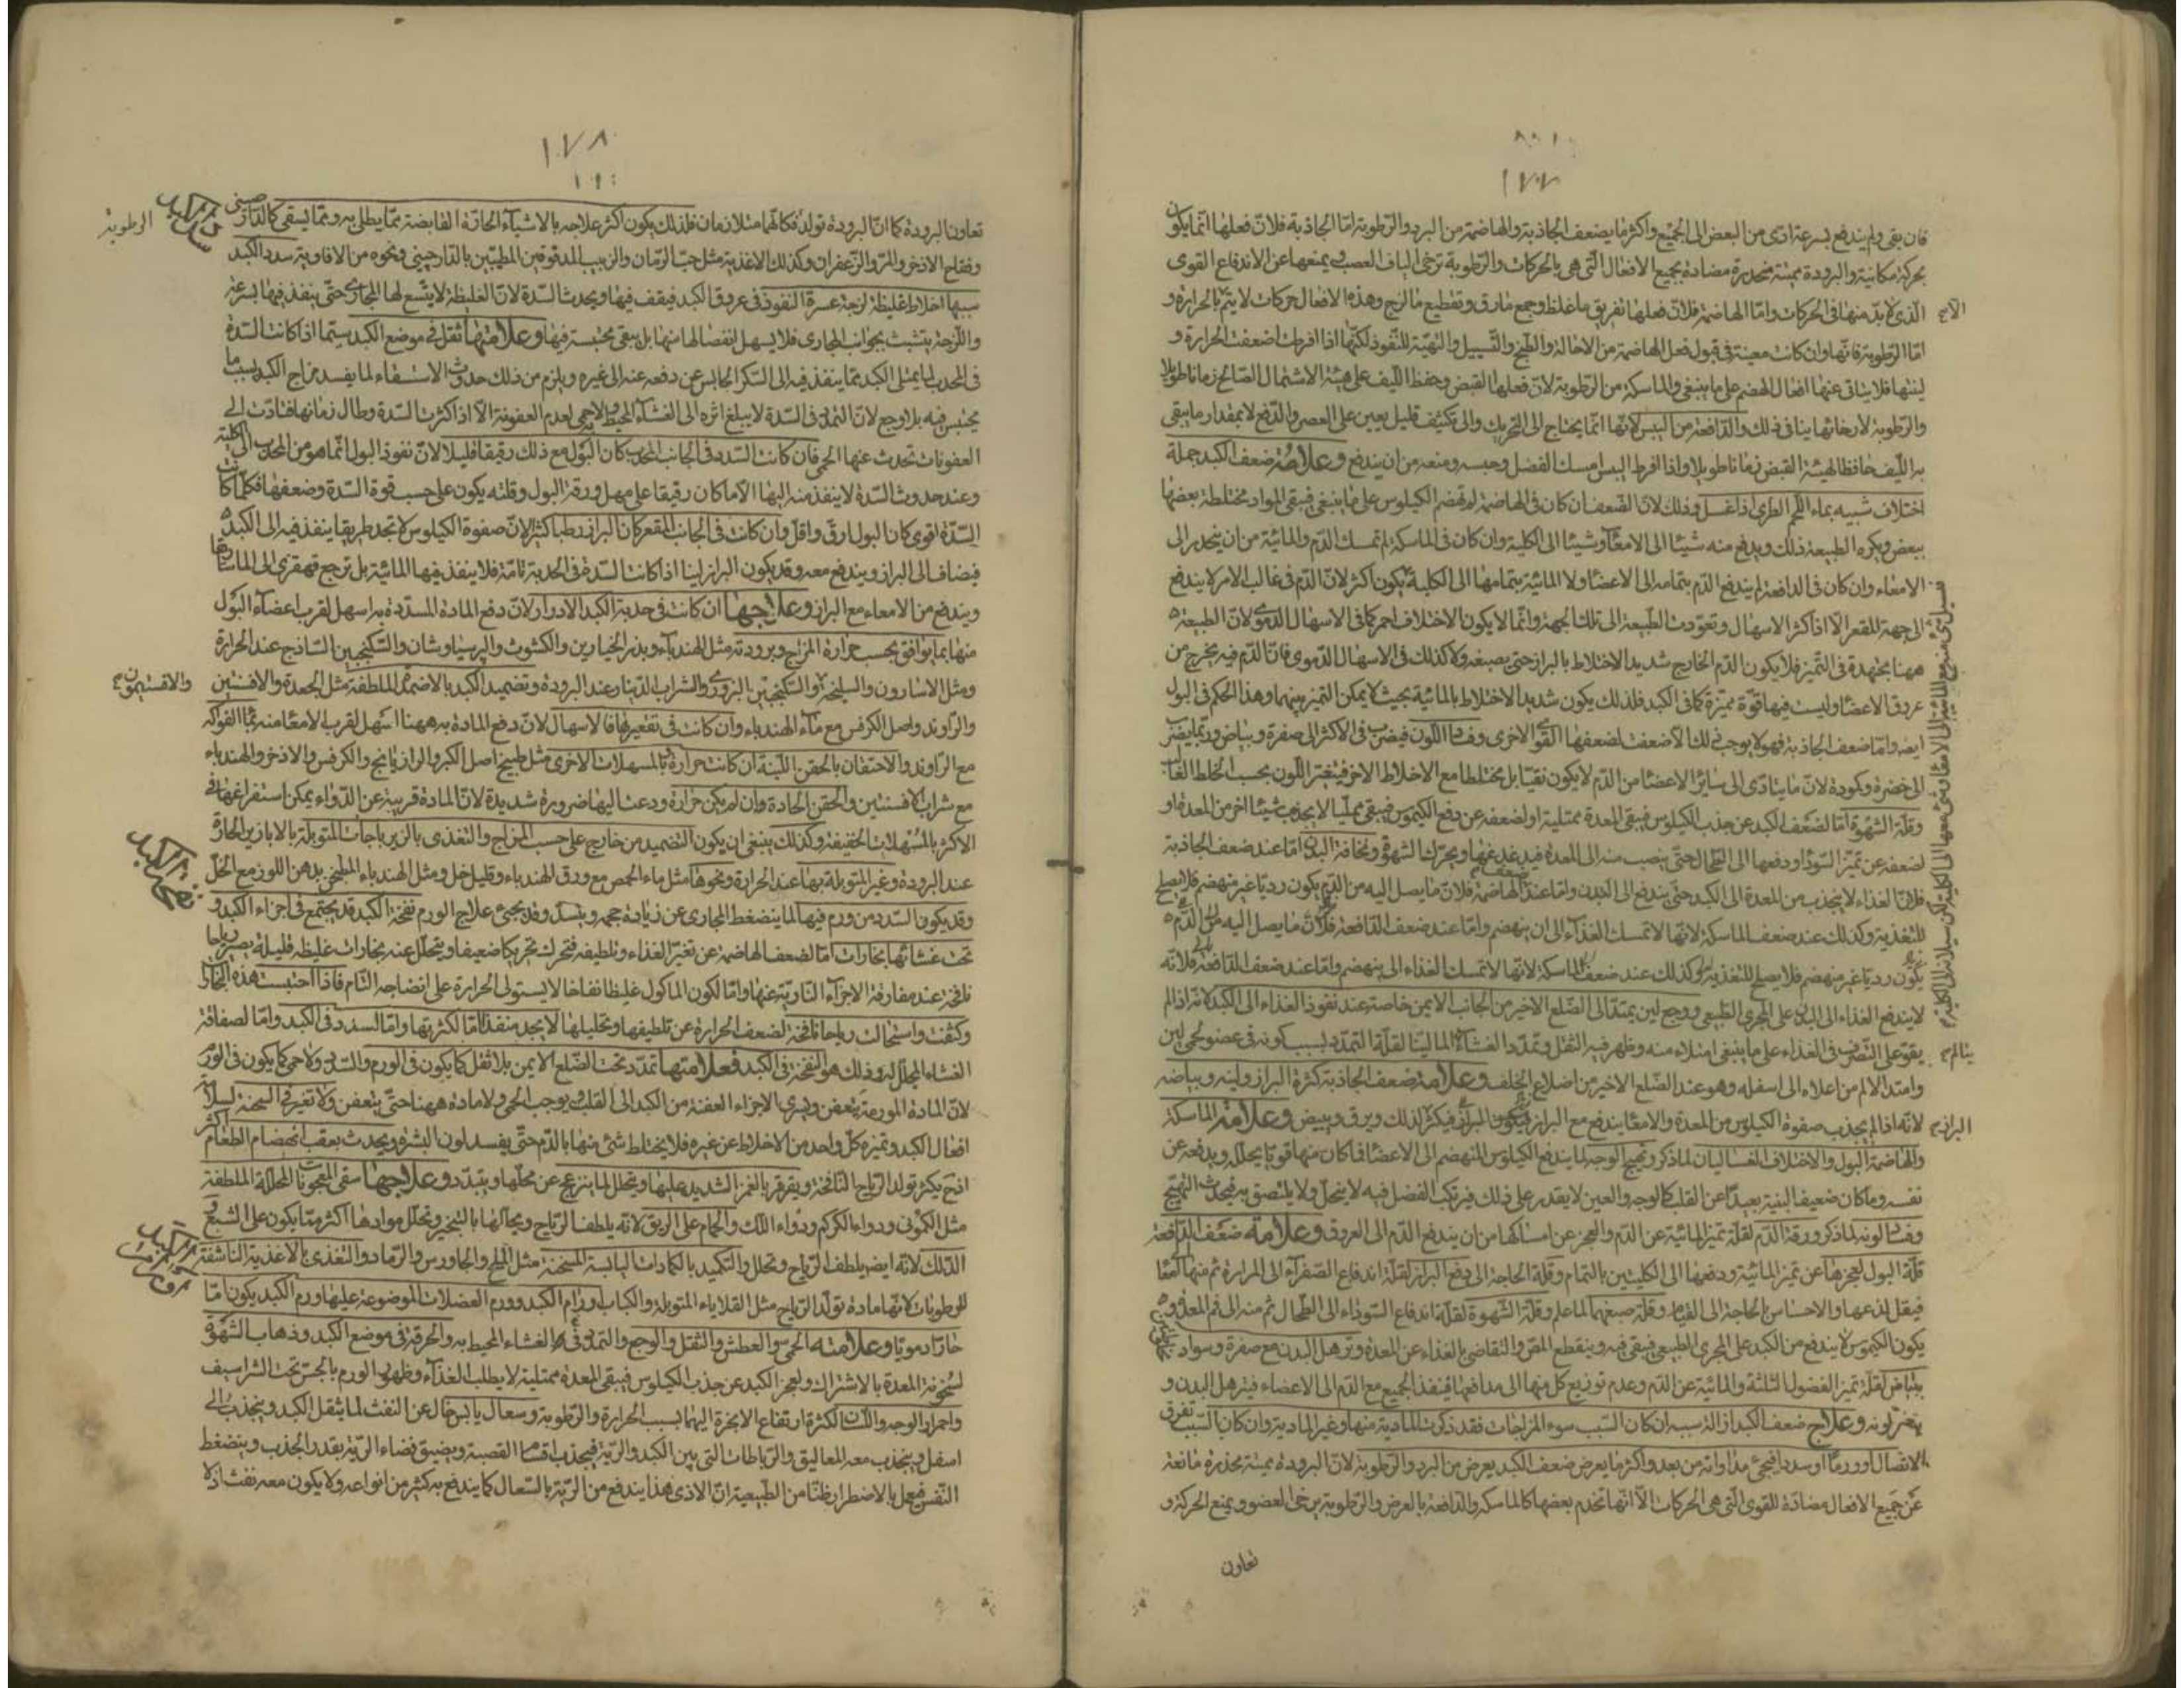 ١٧٧
فان بقى ولم يندفع بسرعة ادى من البعض الى الجميع واكثر ما يضعف الجاذبة والهاضمة من البرد والرطوبة اما الجاذبة فلان فعلها انما يكون
بحركة مكانية والبرودة مميتة مخدرة مضادة بجميع الافعال التى هى بالحركات والرطوبة ترخى الياف العصب ويمنعها عن الاندفاع القوى
الذى لابد منها فى الحركات واما الهاضمة فلان فعلها تفريق ما غلظ وجمع مارق وتقطيع ما لزج وهذه الافعال حركات لا يتم بالحرارة و
اما الرطوبة فانها وان كانت معينة فى قبول فعل الهاضمة من الاحالة والطبخ والتسييل والتهيئة للنفوذ لكنها اذا افرطت اضعفت الحرارة و
لينتها فلا يتاتى عنها افعال الهضم على ما ينبغى والماسكة من الرطوبة لان فعلها القبض وحفظ الليف على هيئة الاشتمال الصالح زمانا طويلا
والرطوبة لارخائها ينافى ذلك والدافعة من اليبس لانها انما يحتاج الى التحريك والى تكثيف قليل يعين على العصر والدفع لا بمقدار ما يبقى
به الليف حافظا لهيئة القبض زمانا طويلا واذا افرط اليبس امسك الفضل وحبسه ومنعه من ان يندفع وعلامة ضعف الكبد جملة
اختلاف شبيه بماء اللحم الطرى اذا غسل وذلك لان الضعف ان كان فى الهاضمة لم تهضم الكيلوس على ما ينبغى فيبقى المواد مختلطة بعضها
ببعض ويكره الطبيعة ذلك ويدفع منه شيئا الى الامعاء وشيئا الى الكلية وان كان فى الماسكة لم تمسك الدم والمائية من ان ينحدر الى
الامعاء وان كان فى الدافعة لم يندفع الدم بتمامه الى الاعضاء ولا المائية بتمامها الى الكلية يكون اكثر لان الدم فى غالب الامر لا يندفع
الى جهة المقعر الا اذا كثر الاسهال وتعودت الطبيعة الى تلك الجهة وانما لا يكون الاختلاف احمر كما فى الاسهال الدموى لان الطبيعة
ههنا مجتهدة فى التميز فلا يكون الدم الخارج شديد الاختلاط بالبراز حتى يصبغه ولا كذلك فى الاسهال الدموى فان الدم فيه يخرج من
عروق الاعضاء وليست فيها قوة مميزة كما فى الكبد فلذلك يكون شديد الاختلاط بالمائية بحيث لا يمكن التميز بينهما وهذا الحكم فى البول
ايضه واما ضعف الجاذبة فهو لا يوجب ذلك الا ضعفت لضعفها القوى الاخرى وفساد اللون فيضرب فى الاكثر الى صفرة وبياض وربما يضرب
الى خضرة وكمودة لان ما يتادى الى سائر الاعضاء من الدم لا يكون نقيا بل مختلطا مع الاخلاط الاخر فيتغير اللون بحسب الخلط الغالب
وقلة الشهوة اما لضعف الكبد عن جذب الكيلوس فيبقى المعدة ممتلية او لضعفه عن دفع الكيموس فيبقى ممتليا لا يجذب شيئا اخر من المعدة او
لضعفه عن تميز السودا ودفعها الى الطحال حتى ينصب منه الى المعدة فيدغدغها ويحرك الشهوة ونحافة البدن اما عند ضعف الجاذبة
فلان الغذاء لا ينجذب من المعدة الى الكبد حتى يندفع الى البدن واما عند الهاضمة فلان ما يصل اليه من الدم يكون رديا غير منهضم فلا يصلح
للتغذية وكذلك عند ضعف الماسكة لانها لا تمسك الغذاء الى ان ينهضم واما عند ضعف الدافعة فلان ما يصل اليه من الدم
يكون رديا غير منهضم فلا يصلح للتغذية وكذلك عند ضعف الماسكة لانها لا تمسك الغذاء الى ينهضم واما عند ضعف الدافعة فلانه
لا يندفع الغذاء الى البدن على المجرى الطبيعى ووجع لين يمتد الى الضلع الاخير من الجانب الايمن خاصة عند نفوذ الغذاء الى الكبد لانه اذا لم
يقو على التصرف فى الغذاء على ما ينبغى امتلاء منه وظهر فيه الثقل وتمدد الغشاء لينا لقلة التمدد لسبب كونه فى عضو لحمى لين
وامتد الالم من اعلاه الى اسفله وهو عند الضلع الاخير من اضلاع الخلف وعلامة ضعف الجاذبة كثرة البراز ولينه وبياضه
لانه اذا لم يجذب صفوة الكيلوس من المعدة والامعاء يندفع مع البراز فيكثر لذلك ويرق ويبيض وعلامة الماسكة
والهاضمة البول والاختلاف الغساليان لما ذكر وتهيج الوجه لما يندفع الكيلوس المنهضم الى الاعضاء فما كان منها قويا يحلله ويدفعه عن
نفسه وما كان ضعيف البنية بعيدا عن القلب كالوجه والعين لا يقدر على ذلك فيرتبك الفضل فيه لا ينحل ولا يلتصق به فيحدث التهيج
وفساد لونه لما ذكر ورقة الدم لقلة تميز المائية عن الدم والعجز عن امساكها من ان يندفع الدم الى العروق وعلامة ضعف الدافعة
قلة البول لعجزها عن تميز المائية ودفعها الى الكليتين بالتمام وقلة الحاجة الى دفع البراز لقلة اندفاع الصفراء الى المرارة ثم منها الى المعا
فيقل لذعها والاحساس بالحاجة الى القيام وقلة صبغهما لما علم وقلة الشهوة لقلة اندفاع السوداء الى الطحال ثم منه الى فم المعدة
يكون الكيموس لا يندفع من الكبد على المجرى الطبيعى فيبقى فيه وينقطع المص والتقاضى بالغذاء عن المعدة وترهل البدن مع صفرة وسواد
بياض لقلة تميز الفضول الثلثة والمائية عن الدم وعدم توزيع كل منها الى مدافعها فينفذ الجميع مع الدم الى الاعضاء فيترهل البدن و
يتغير لونه وعلاج ضعف الكبد ازالة سببه ان كان السبب سوء المزاجات فقد ذكرت المادية منها وغير المادية وان كان السبب تفرق
الاتصال او ورما او سددا فيجئ مداواته من بعد واكثر ما يعرض ضعف الكبد يعرض من البرد والرطوبة لان البرودة مميتة مخدرة مانعة
عن جميع الافعال مضادة للقوى التى هى الحركات الا انها تخدم بعضها كالماسكة والدافعة بالعرض والرطوبة يرخى العضو ويمنع الحركة و
تعاون
١٧٨
تعاون البرودة كما ان البرودة تولد فكانهما متلازمان فلذلك يكون اكثر علاجه بالاشياء الحارة القابضة مما يطلى به ومما يسقى كالدارصينى
وفقاح الاذخر والمر والزعفران وكذلك الاغذية مثل حب الرمان والزبيب المدقوقين المطيبين بالدارچينى ونحوه من الافاوية سدد الكبد
سببها اخلاط غليظة لزجة عسرة النفوذ فى عروق الكبد فيقف فيها ويحدث السدة لان الغليظة لا يتسع لها المجارى حتى ينفذ فيها بسرعة
واللزجة يتشبث بجوانب المجارى فلا يسهل انفصالها منها بل يبقى محتبسة فيها وعلامتها ثقل فى موضع الكبد سيما اذا كانت السدة
فى المحدب لما يمتلى الكبد مما ينفذ فيه الى السكر الحابس عن دفعه عنه الى غيره ويلزم من ذلك حدوث الاستسقاء لما يفسد مزاج الكبد بسبب ما
يحتبس فيه بلا وجع لان التمدد فى السدة لا يبلغ اثره الى الغشاء المحيط به ولا حمى لعدم العفونة الا اذا كثرت السدة وطال زمانها فتادت الى
العفونات تحدث عنها الحمى فان كانت السدد فى الجانب المحدب كان البول مع ذلك رقيقا قليلا لان نفوذ البول انما هو من المحدب الى الكلية
وعند حدوث السدة لا ينفذ منه اليها الا ما كان رقيقا على مهل ورقة البول وقلته يكون على حسب قوة السدة وضعفها فكلما كانت
السدة اقوى كان البول ارق واقل وان كانت فى الجانب المقعر كان البراز رطبا كثيرا لان صفوة الكيلوس لا تجد طريقا ينفذ فيه الى الكبد
فيضاف الى البراز ويندفع معه وقد يكون البراز لينا اذا كانت السدة فى الحدبة تامة فلا ينفذ فيها المائية بل ترجع قهقرى الى الماساريقا
ويندفع من الامعاء مع البراز وعلاجها ان كانت فى حدبة الكبد الادرار لان دفع المادة المسددة به اسهل لقرب اعضاء البول
منها بما يوافق بحسب حرارة المزاج وبرودته مثل الهندباء وبذر الخيارين والكشوث والپرسياوشان والسكنجبين الساذج عند الحرارة
ومثل الاسارون والسليخة والسكنجبين البزورى والشراب الدينار عند البرودة وتضميد الكبد بالاضمدة الملطفة مثل الجعدة والافسنتين
والراوند واصل الكرفس مع ماء الهندباء وان كانت فى تقعيرها فالاسهال لان دفع المادة به ههنا اسهل لقرب الامعاء منه بماء الفواكه
مع الراوند والاحتقان بالحقن اللينة ان كانت حرارة بالمسهلات الاخرى مثل طبيخ اصل الكبر والرازيانج والكرفس والاذخر والهندباء
مع شراب الافسنتين والحقن الحادة وان لم يكن حرارة ودعت اليها ضرورة شديدة لان المادة قريبة عن الدواء يمكن استفراغها فى
الاكثر بالمسهلات الخفيفة وكذلك ينبغى ان يكون التضميد من خارج على حسب المزاج والتغذى بالزيرباجات المتوبلة بالابازير الحارة
عند البرودة وغير المتوبلة بها عند الحرارة ونحوها مثل ماء الحمص مع ورق الهندباء وقليل خل ومثل الهندباء المطبخ بدهن اللوز مع الخل
وقد يكون السدد من ورم فيها لما ينضغط المجارى عن زيادة حجمه وينسد وقد يجئ علاج الورم نفخة الكبد قد يجتمع فى اجزاء الكبد و
تحت غشائها بخارات اما لضعف الهاضمة عن تغير الغذاء وتلطيفه فتحرك تحريكا ضعيفا ويتحلل عنه بخارات غليظة قليلة يصير رياحا
نافخة عند مفارقة الاجزاء النارية عنها واما لكون الماكول غليظا نفاخا لا يستولى الحرارة على انضاجه التام فاذا احتبست هذه البخارات
وكثفت واستحالت رياحا نافخة لضعف الحرارة عن تلطيفها وتحليلها لا يجد منفذا اما لكثرتها واما لسدد فى الكبد واما لصفاقة
الغشاء المجلل له وذلك هو النفخة فى الكبد فعلامتها تمدد تحت الضلع الايمن بلا ثقل كما يكون فى الورم والسدد ولا حمى كما يكون فى الورم
لان المادة المورمة يتعفن ويسرى الاجزاء العفنة من الكبد الى القلب ويوجب الحمى ولا مادة ههنا حتى يتعفن ولا تغير فى السحنة لسلامة
افعال الكبد وتميزه كل واحد من الاخلاط عن غيره فلا يختلط شئ منها بالدم حتى يفسد لون البشرة ويحدث بعقب انهضام الطعام اكثر
اذ حينئذ يكثر تولد الرياح النافخة ويقرقر بالغمز الشديد عليها ويتحلل لما ينزعج عن محلها ويتبدد وعلاجها سقى المعجونات المحللة الملطفة
مثل الكمونى ودواء الكركم ودواء اللك والحمام على الريق لانه يلطف الرياح ويحللها بالتبخير وتحلل موادها اكثر مما يكون على الشبع و
الدلك لانه ايضه يلطف الرياح ويحلل والتكميد بالكمادات اليابسة المسخنة مثل الملح والجاورس والرماد والتغذى بالاغذية الناشفة
للرطوبات كانها مادة تولد الرياح مثل القلاياء المتوبلة والكباب اورام الكبد وورم العضلات الموضوعة عليها ورم الكبد يكون اما
حارا دمويا وعلامته الحمى والعطش والثقل والوجع والتمدد فى الغشاء المحيط به والحرقة فى موضع الكبد وذهاب الشهوة
لسخونة المعدة بالاشتراك ولعجز الكبد عن جذب الكيلوس فيبقى المعدة ممتلية لا يطلب الغذاء وظهور الورم بالمجس تحت الشراسيف
واحمرار الوجه واللسان لكثرة ارتفاع الابخرة اليهما بسبب الحرارة والرطوبة وسعال يابس خال عن النفث لما يثقل الكبد وينجذب الى
اسفل وينجذب معه المعاليق والرباطات التى بين الكبد والرية فيجذب اقسام القصبة ويضيق فضاء الرية بقدر الجذب وينضغط
النفس فيعمل بالاضطرار ظنا من الطبيعة ان الاذى هذا يندفع من الرية بالسعال كما يندفع به كثير من انواعه ولا يكون معه نفث اذ لا
سدد الكبد
الرطوبة
والافتيمون
نفخة الكبد